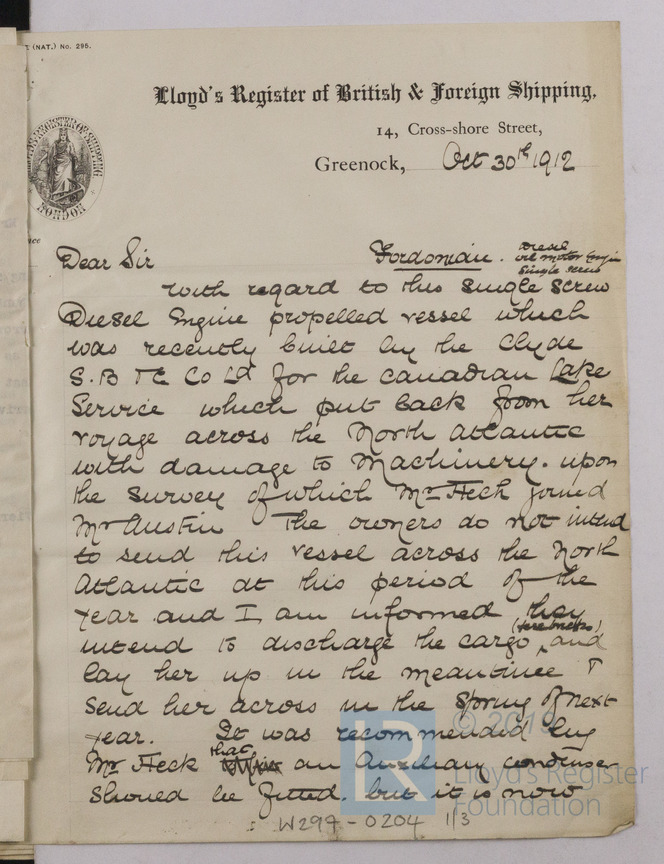 (NAT.) No. 295.
Lloyd's Register of British & Foreign Shipping.
14, Cross-shore Street,
Greenock, Oct 30th 1912
LONDON
Dear Sir Fordonian. Diesel
oil motor Engin
Single screw
with regard to this single screw
Diesel Engine propelled vessel which
was recently built by the Clyde
S.B & E Co Ld for the Canadian Lake
Service which put back from her
voyage across the North Atlantic
with damage to Machinery. upon
the survey of which Mr Heck joined
Mr Austin The owners do not intend
to send this vessel across the North
Atlantic at this period of the
year and I am informed they
intend to discharge the cargo (fire bricks) and
lay her up in the meantime &
send her across in the Spring of next
year. It was recommended by
Mr Heck that an Auxiliary condenser
should be fitted. but it is now
W299-0204 1/3
© 2019
LR
Lloyd's Register
Foundation